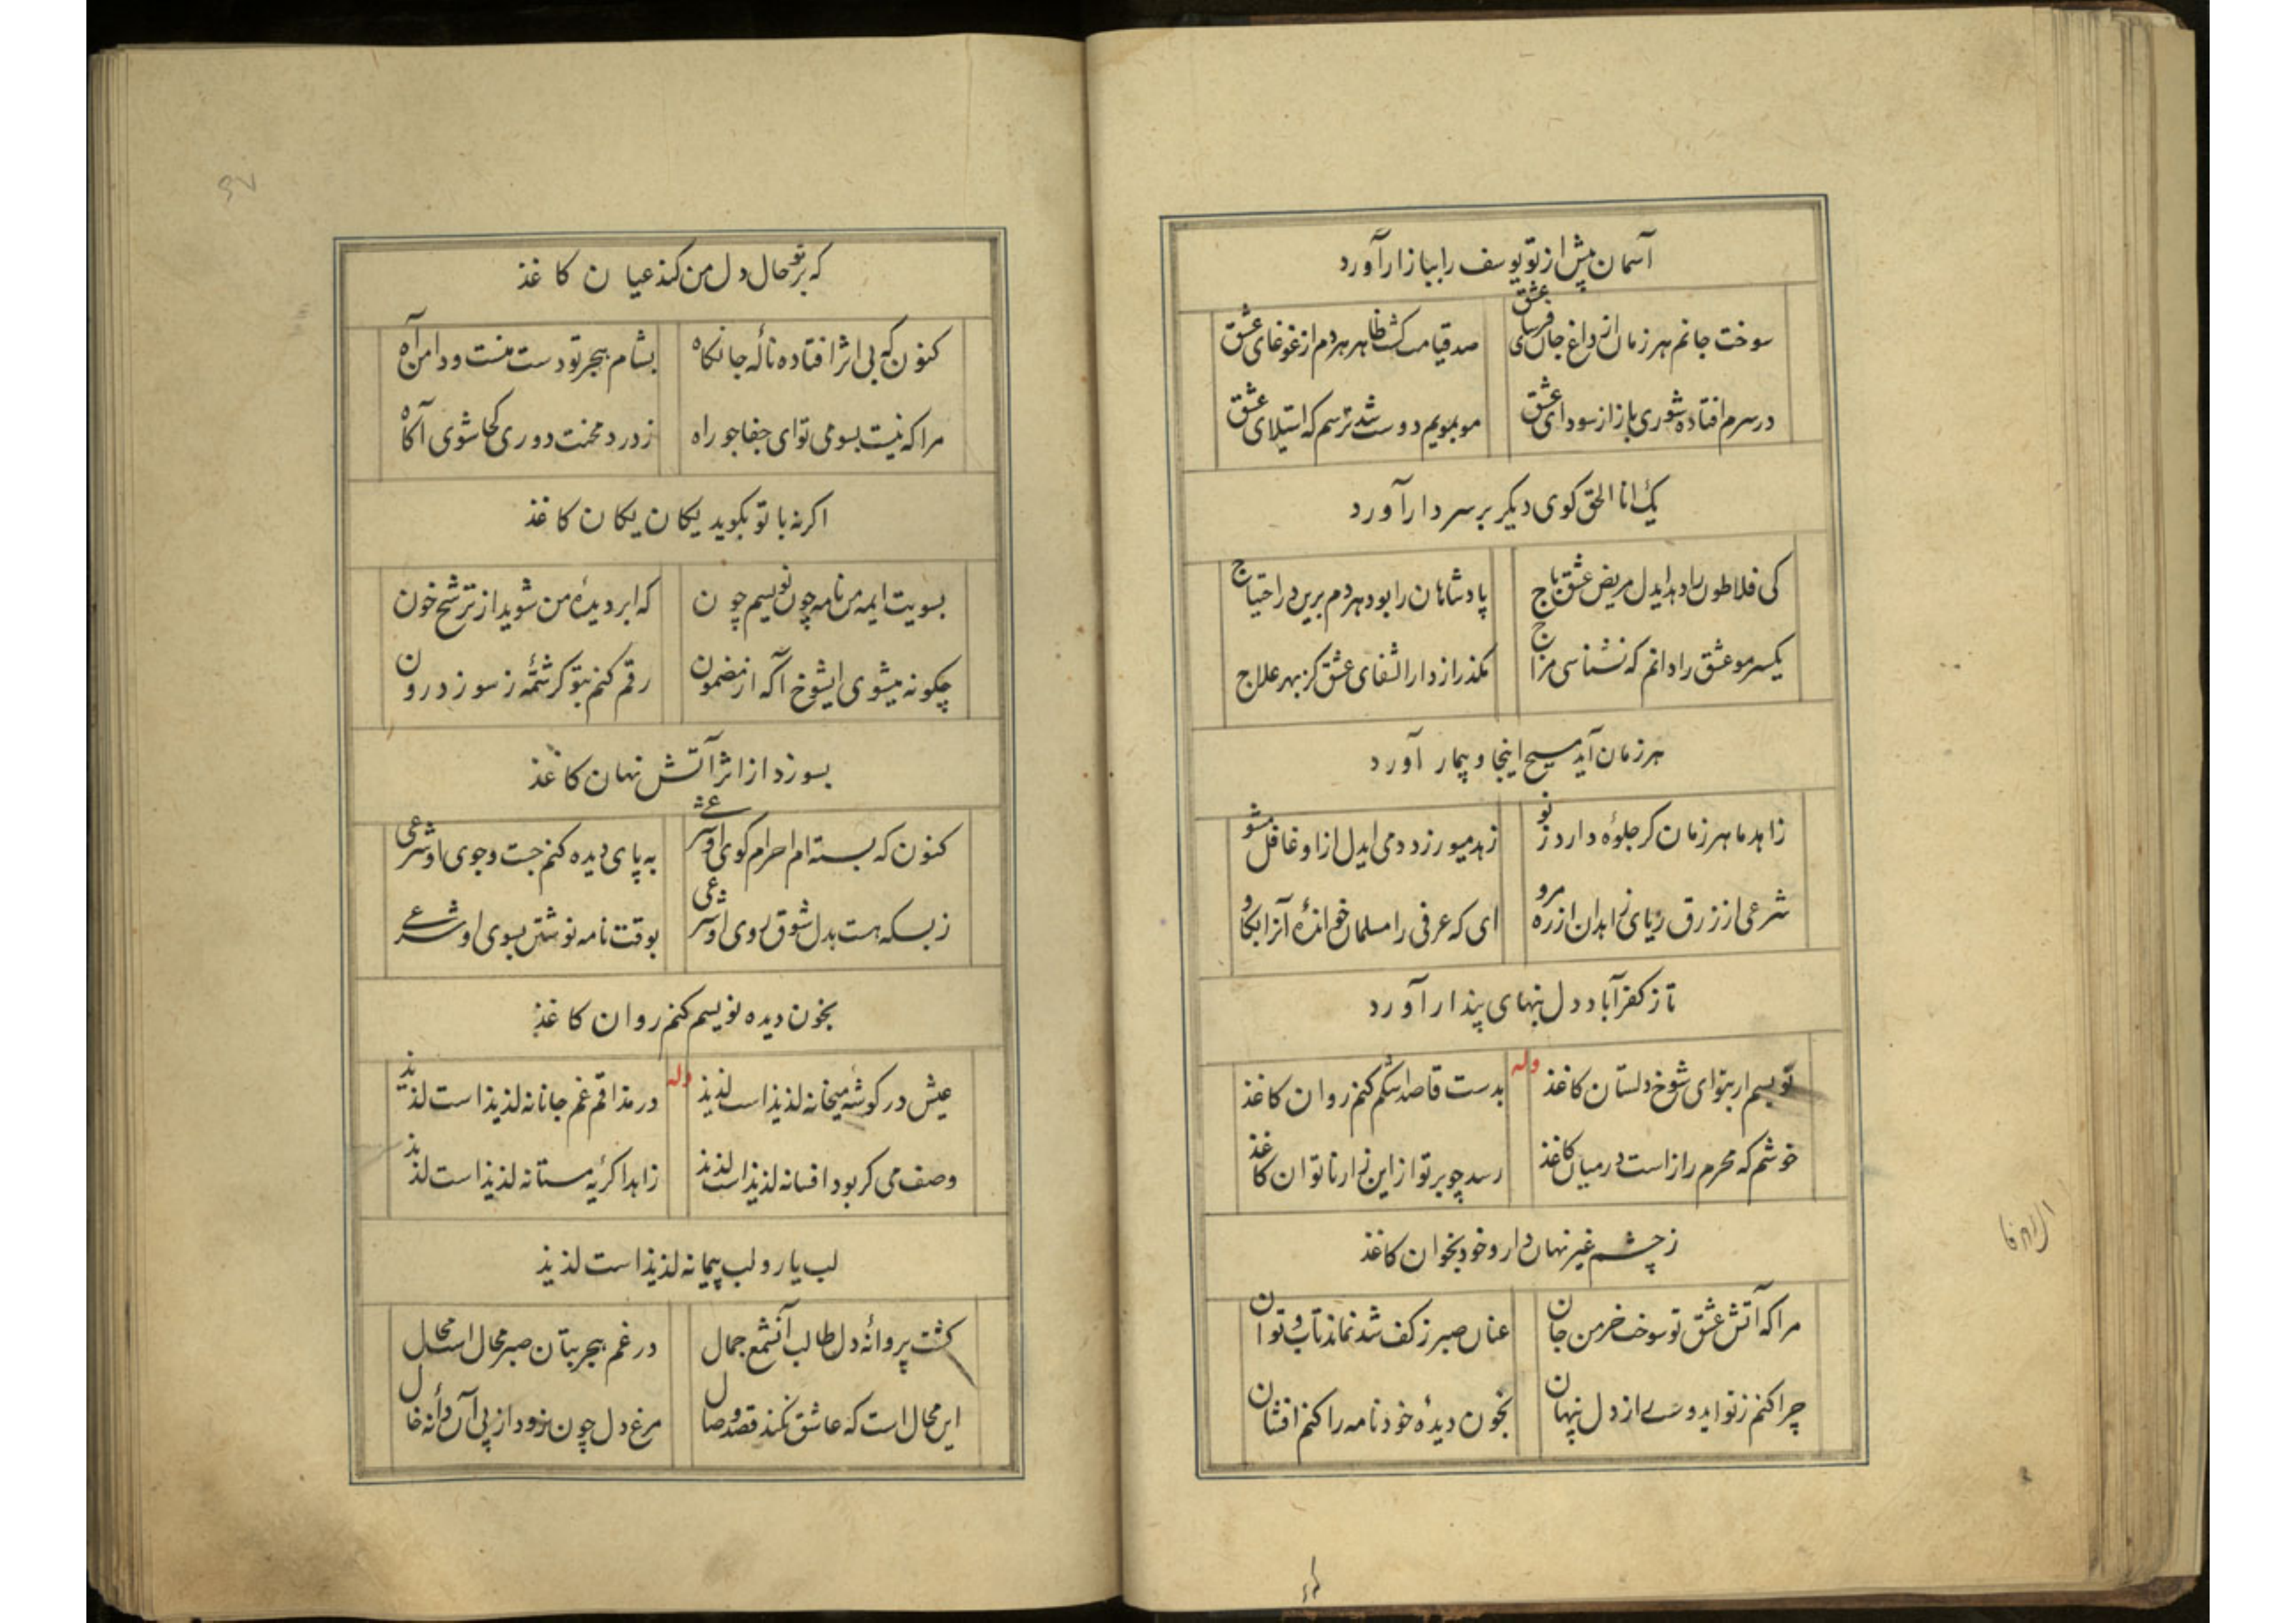 آسمان پیش از تو یوسف را ببازار آورد
سوخت جانم هر زمان از داغ جان فرسای عشق صد قیامت کشت ظاهر هر دم از غوغای عشق
در سرم افتاده شوری باز از سودای عشق مو بمویم دوست شد ترسم که استیلای عشق
یک انا الحق کوی دیکر بر سر دار آورد
کی فلاطون را دهد ایدل مریض عشق باج پادشاهان را بود هر دم برین در احتیاج
یکسر مو عشق را دانم که نشناسی مزاج مکذر از دار الشفای عشق کز بهر علاج
هر زمان آید مسیح اینجا و بیمار آورد
زاهد ما هر زمان کر جلوهٔ دارد ز نو زهد میورزد دمی ایدل از او غافل مشو
شرعی از زرق ریای زاهدان از ره مرو ای که عرفی را مسلمان خواندهٔ آنرا بکاو
تا ز کفر آباد دل بتهای پندار آورد
نویسم ار بتو ای شوخ دلستان کاغذ وله بدست قاصد اشکم کنم روان کاغذ
خوشم که محرم راز است در میان کاغذ رسد چو بر تو از این زار ناتوان کاغذ
ز چشم غیر نهان دار و خود بخوان کاغذ
مرا که آتش عشق تو سوخت خرمن جان عنان صبر ز کف شد نماند تاب و توان
چرا کنم ز تو ایدوست راز دل پنهان بخون دیدهٔ خود نامه را کنم افشان
که بر تو حال دل من کند عیان کاغذ
کنون که بی اثر افتاده نالهٔ جانکاه بشام هجر تو دست منست و دامن آه
مرا که نیست بسوی تو ای جفاجو راه ز درد محنت دوری کجا شوی آکاه
اکر نه با تو بکوید یکان یکان کاغذ
بسویت ایمه من نامه چون نویسم چون که ابر دیدهٔ من شوید از ترشح خون
چکونه میشوی ایشوخ آکه از مضمون رقم کنم بتو کر شمّهٔ ز سوز درون
بسوزد از اثر آتش نهان کاغذ
کنون که بسته ام احرام کوی او شرعی به پای دیده کنم جست و جوی او شرعی
ز بسکه هست بدل شوق روی او شرعی بوقت نامه نوشتن بسوی او شرعی
بخون دیده نویسم کنم روان کاغذ
عیش در کوشه میخانه لذیذ است لذیذ وله در مذاقم غم جانانه لذیذ است لذیذ
وصف می کر بود افسانه لذیذ است لذیذ زاهدا کریه مستانه لذیذ است لذیذ
لب یار و لب پیمانه لذیذ است لذیذ
کشت پروانهٔ دل طالب آنشمع جمال در غم هجر بتان صبر محال است محال
این محال است که عاشق نکند قصد وصال مرغ دل چون نرود از پی آن دانه خال
۶۷